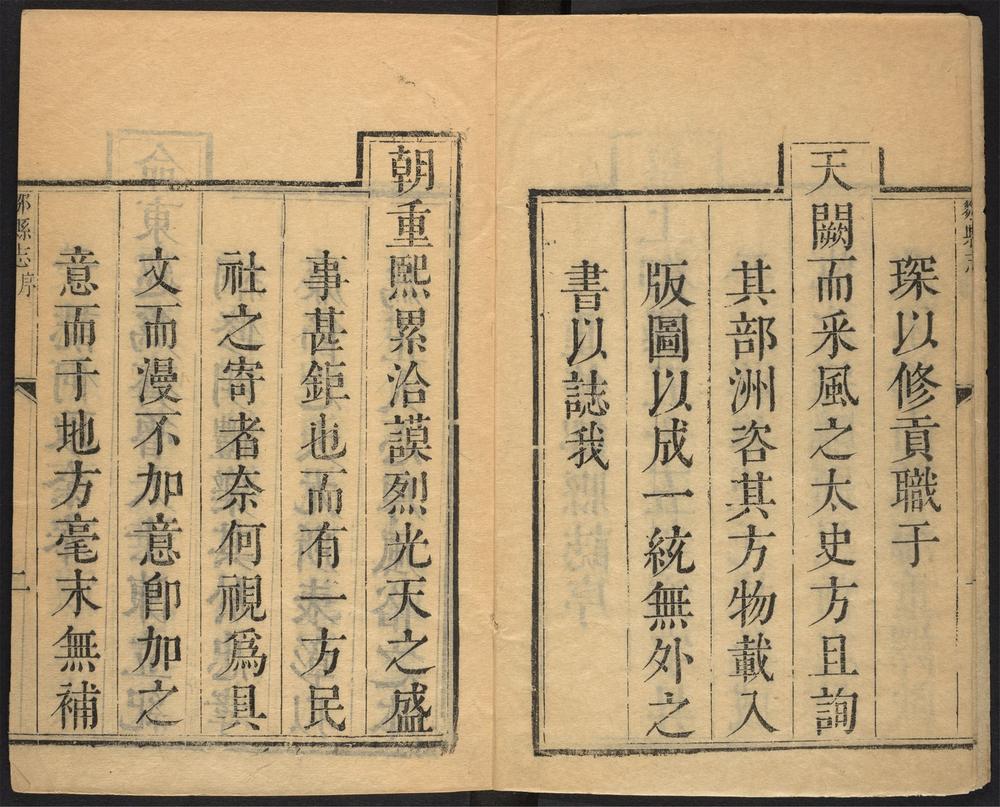 琛以修貢職于
天闕而采風之太史方且詢
其部洲咨其方物載入
版圖以成一統無外之
書以誌我
朝重熙累洽謨烈光天之盛
事甚鉅也而有一方民
社之寄者奈何視爲具
文而漫不加意卽加之
意而于地方毫末無補
縣志序
二